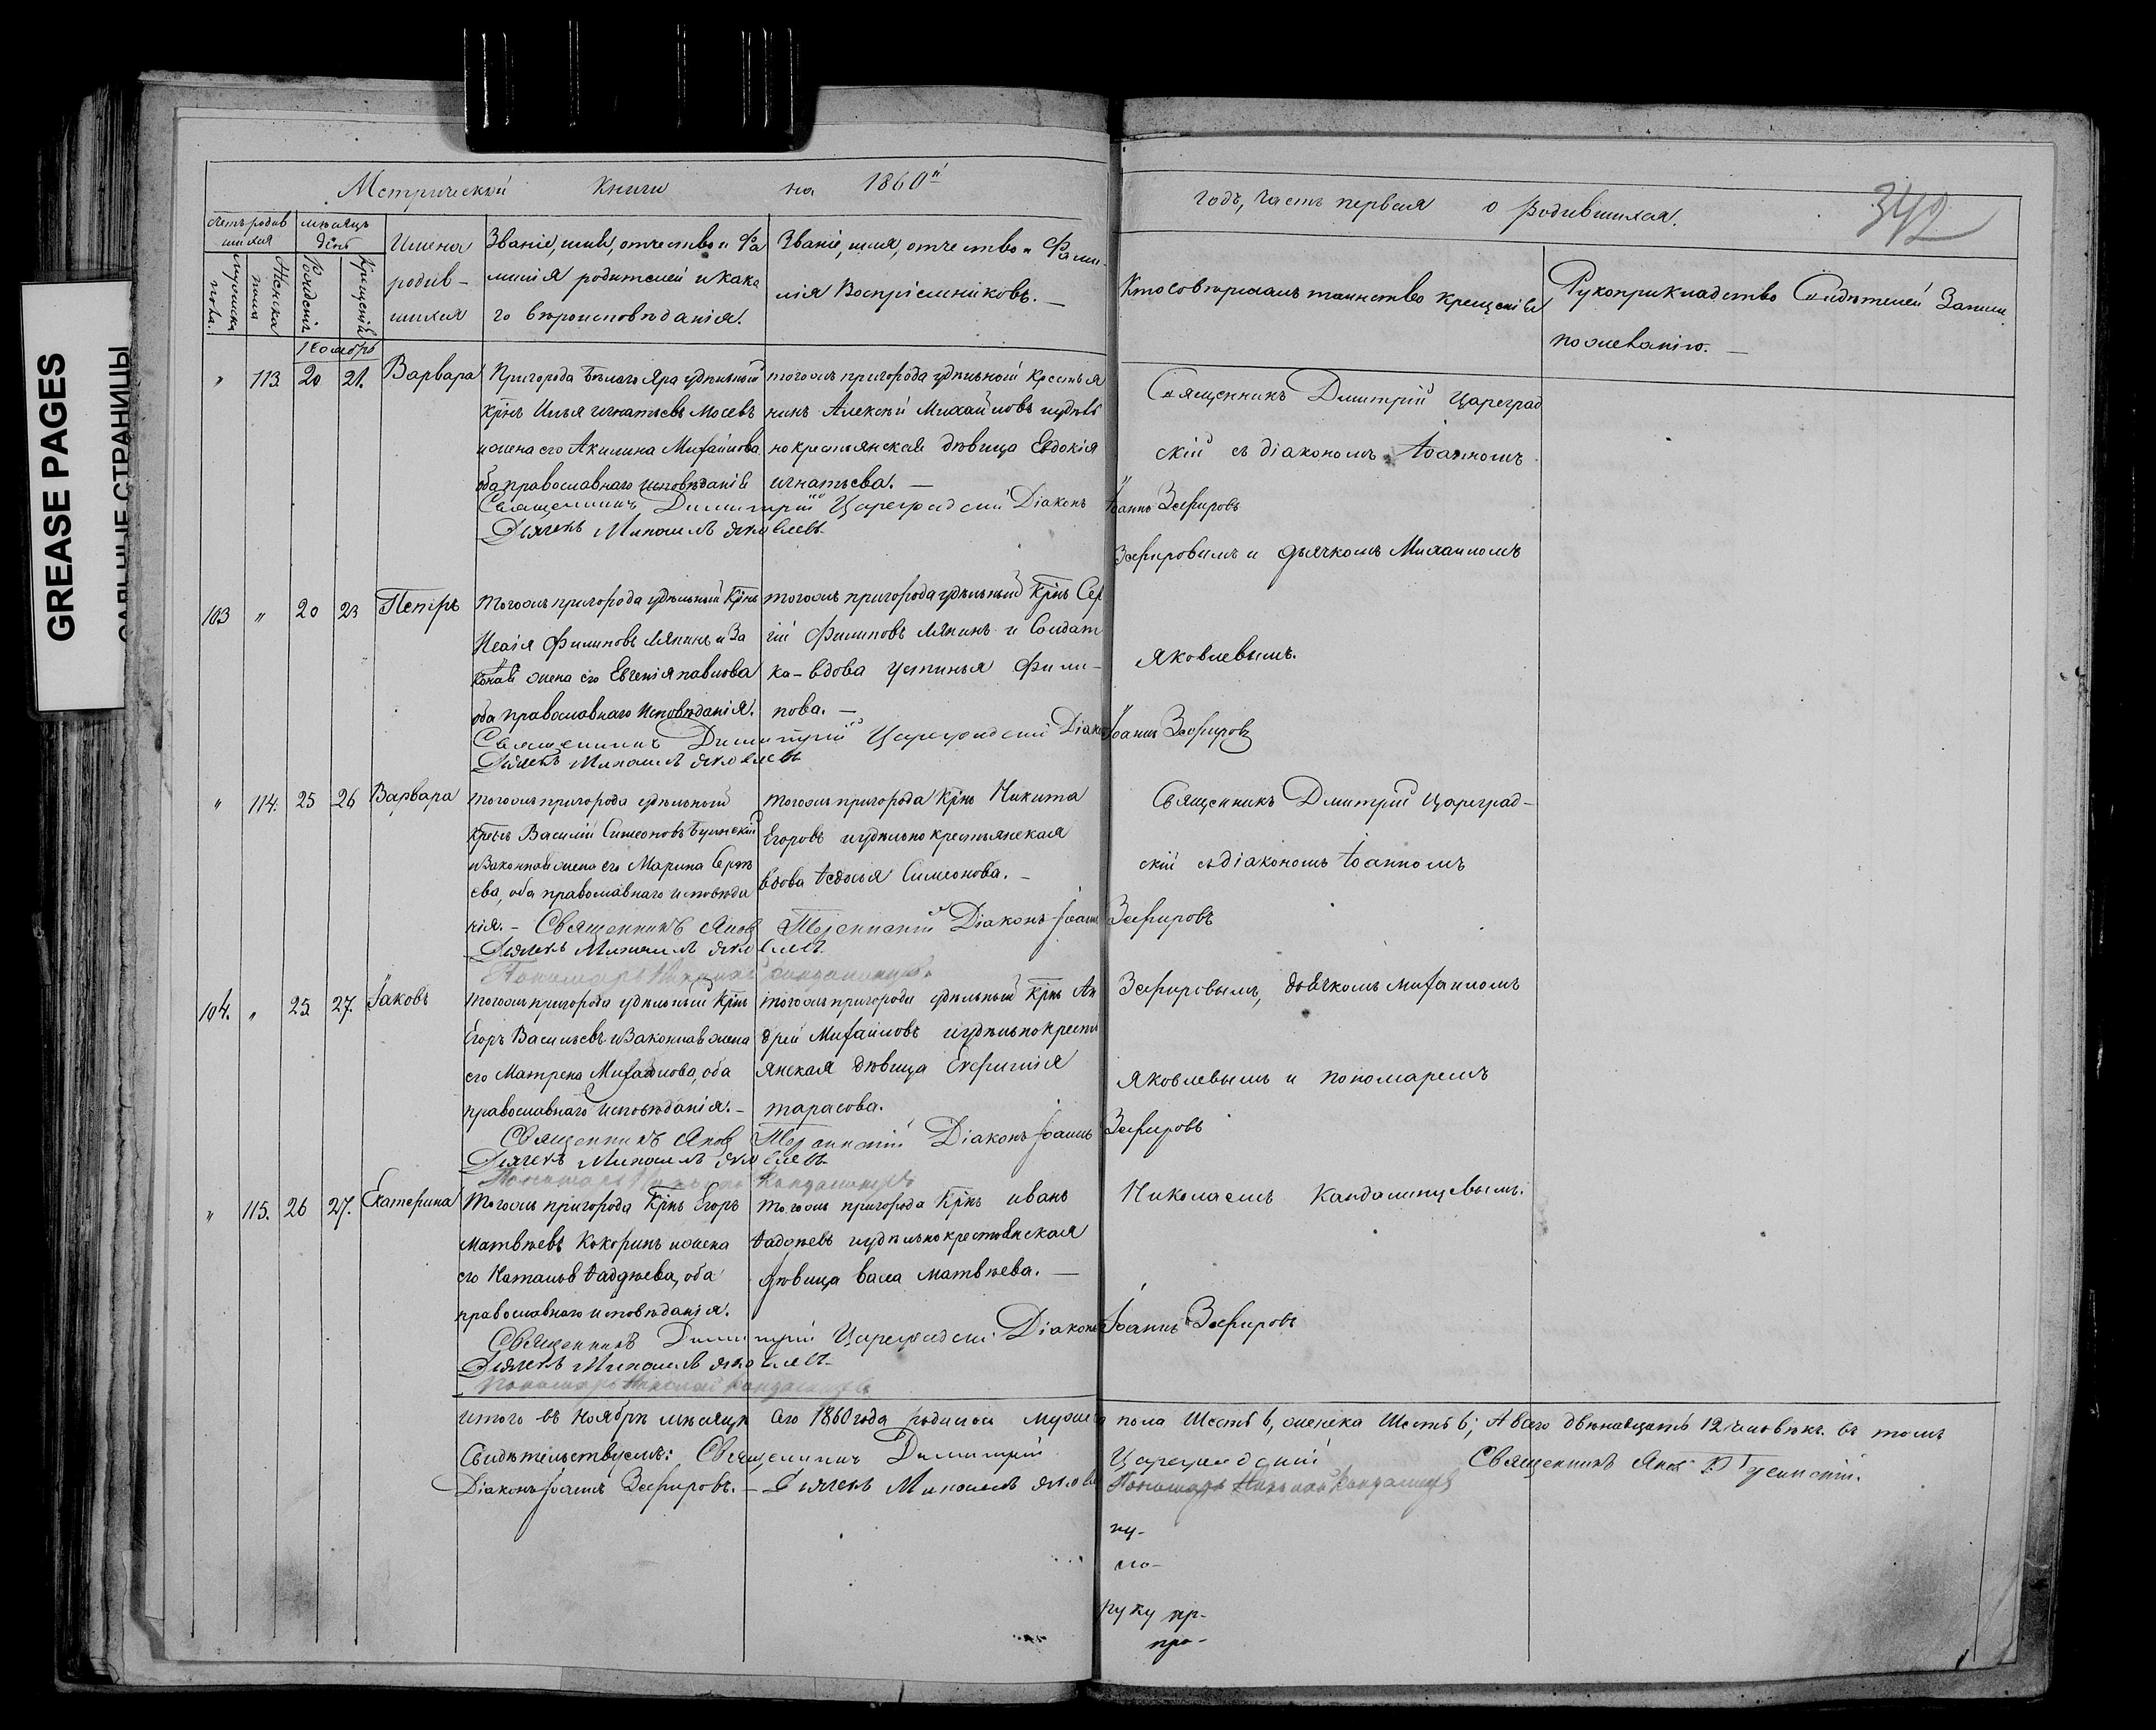 GREASE PAGES
САЛЬНЫЕ СТРАНИЦЫ
Метрической книги на 1860й
годъ, часть первая о родившихся.
342
счетъ родив
шихся
мѣсяцъ
день
мужеска
пола.
Женска
пола
Рожденія
Крещенія
Имена
родив-
шихся
Званіе, имя, отчество и Фа
милія родителей и како
го вѣроисповѣданія.
Званіе, имя, отчество и Фами-
лія Воспріемниковъ. —
Кто совершалъ таинство крещенія
Рукоприкладство Свидѣтелей Записи
по желанію. —
Ноябрь
" 113. 20 21. Варвара
Пригорода Бѣлаго Яра удѣльный
крнъ Илья Игнатьевъ Мосевъ
и жена его Акилина Михайлова
оба православнаго исповѣданія
тогожъ пригорода удѣльной крестья
нинъ Алексѣй Михайловъ и удѣль
но крестьянская дѣвица Евдокія
Игнатьева. —
Священникъ Димитрій Цареградскій Діаконъ Іоаннъ Зефировъ
Дьячекъ Михаилъ Яковлевъ.
Священникъ Дмитрій Цареград
скій съ діакономъ Іоанномъ
Зефировымъ и дьячкомъ Михаиломъ
Яковлевымъ.
103 " 20 23 Петръ
Тогожъ пригорода удѣльный крнъ
Исаія Филиповъ Мякинъ и За
конная жена его Евгенія Павлова
оба православнаго исповѣданія.
тогожъ пригорода удѣльный крнъ Сер
гій Филиповъ Мякинъ и Солдат
ка-вдова Устинья Фили-
пова. —
Священникъ Димитрій Цареградскій Діаконъ Іоаннъ Зефировъ
Дьячекъ Михаилъ Яковлевъ
" 114. 25 26 Варвара
Тогожъ пригорода удѣльный
крнъ Василій Симеоновъ
и законная жена его Марина Сергѣ
ева, оба православнаго исповѣда
нія. —
Тогожъ пригорода крнъ Никита
Егоровъ и удѣльно крестьянская
вдова Ѳедосья Симеонова. —
Священникъ Діаконъ Іоаннъ Зефировъ
Дьячекъ Михаилъ Яковлевъ.
Пономарь Николай Кандалинцевъ.
Священникъ Дмитрій Цареград-
скій съ діакономъ Іоанномъ
Зефировымъ, дьячкомъ Михаиломъ
Яковлевымъ и пономаремъ
Николаемъ Кандалинцевымъ.
104. " 25. 27. Іаковъ
Тогожъ пригорода удѣльный крнъ
Егоръ Васильевъ и Законная жена
его Матрена Михайлова, оба
православнаго исповѣданія. —
тогожъ пригорода удѣльный крнъ Ан
дрей Михайловъ и удѣльно крестья
янская дѣвица Ефимія
Тарасова.
Священникъ Діаконъ Іоаннъ Зефировъ
Дьячекъ Михаилъ Яковлевъ.
Пономарь Николай Кандалинцевъ
" 115. 26 27. Екатерина
Тогожъ пригорода крнъ Егоръ
Матвѣевъ Кокоринъ и жена
его Наталья Ѳадѣева, оба
православнаго исповѣданія.
Тогожъ пригорода крнъ Иванъ
Ѳадѣевъ и удѣльно крестьянская
дѣвица Васса Матвѣева. —
Священникъ Димитрій Цареградскі Діаконъ Іоаннъ Зефировъ
Дьячекъ Михаилъ Яковлевъ.
Пономарь Николай Кандалинцевъ.
Итого въ Ноябрѣ мѣсяцѣ сего 1860 года родилось мужеска пола Шесть 6, женска Шесть 6; А всего двѣнадцать 12 человѣкъ. въ томъ
Свидѣтельствуемъ: Священникъ Димитрій Цареградскій Священникъ
Діаконъ Іоаннъ Зефировъ. — Дьячекъ Михаилъ Яковлевъ Пономарь Николай Кандалинцевъ
ру-
ло-
руку пр-
про-